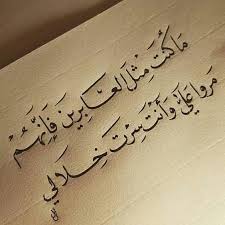 مَا كُنتَ مِثْلَ العَابِرِينَ فَإِنَّهُمْ
مَروا عَلَيَّ وَأَنْتَ سِرْتَ خِلَالِي